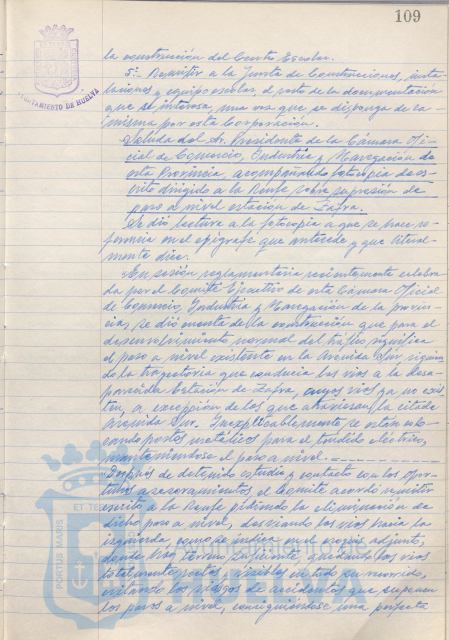 109
AYUNTAMIENTO DE HUELVA
la construcción del Centro Escolar.
5º.- Remitir a la Junta de Construcciones, insta-
laciones y equipo escolar, el resto de la documentación
que se interesa, una vez que se disponga de la
misma por esta Corporación.
Saluda del Sr. Presidente de la Cámara Ofi-
cial de Comercio, Industria y Navegación de
esta Provincia, acompañando fotocopia de es-
crito dirigido a la Renfe sobre supresión de
paso a nivel estación de Zafra.
Se dió lectura a la fotocopia a que se hace re-
ferencia en el epígrafe que antecede y que literal-
mente dice.
"En sesión reglamentaria recientemente celebra-
da por el Comité Ejecutivo de esta Cámara Oficial
de Comercio, Industria y Navegación de la provin-
cia, se dió cuenta de la que para el
desenvolvimiento normal del tráfico significa
el paso a nivel existente en la Avenida Sur, siguien-
do la trayectoria que conducía las vías a la desa-
parecida Estación de Zafra, cuyas vías ya no exis-
ten, a excepción de las que atraviesan la citada
Avenida Sur. Inexplicablemente se están colo-
cando postes metálicos para el tendido eléctrico,
manteniéndose el paso a nivel.
Después de detenido estudio y contacto con los opor-
tunos asesoramientos el Comité acordó remitir
escrito a la Renfe pidiendo la eliminación de
dicho paso a nivel, desviando las vías hacia la
izquierda, como se indica en el croquis adjunto,
donde hay terreno, quedando las vías
totalmente rectas y visibles en todo su recorrido,
evitando los riesgos de accidentes que suponen
los pasos a nivel, consiguiéndose una perfecta
PORTUS MARIS ET TE